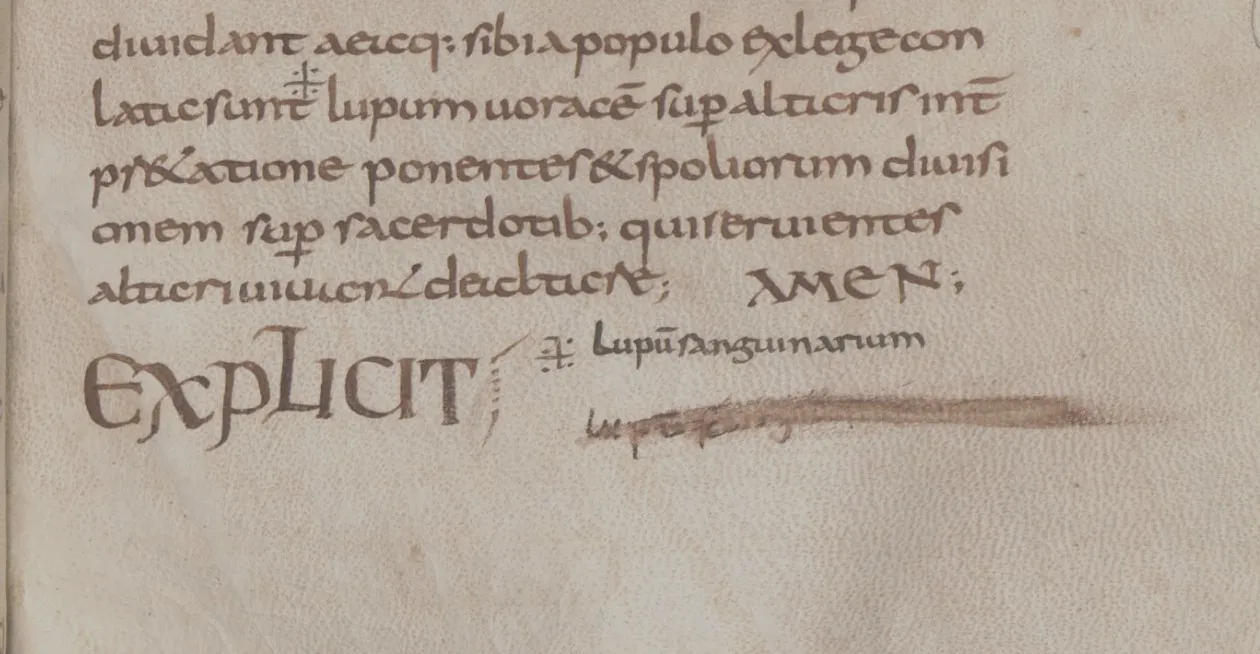 diuidant aeaq: sibi a populo ex lege con
lata sunt ⁜ lupum uoracē sup̱ altaris int̄
pr&atione ponentes & spoliorum diuisi
onem sup̱ sacerdotib; qui seruientes
altari de altare; AMEN;
EXPLICIT
⁜ Lupū sanguinarium